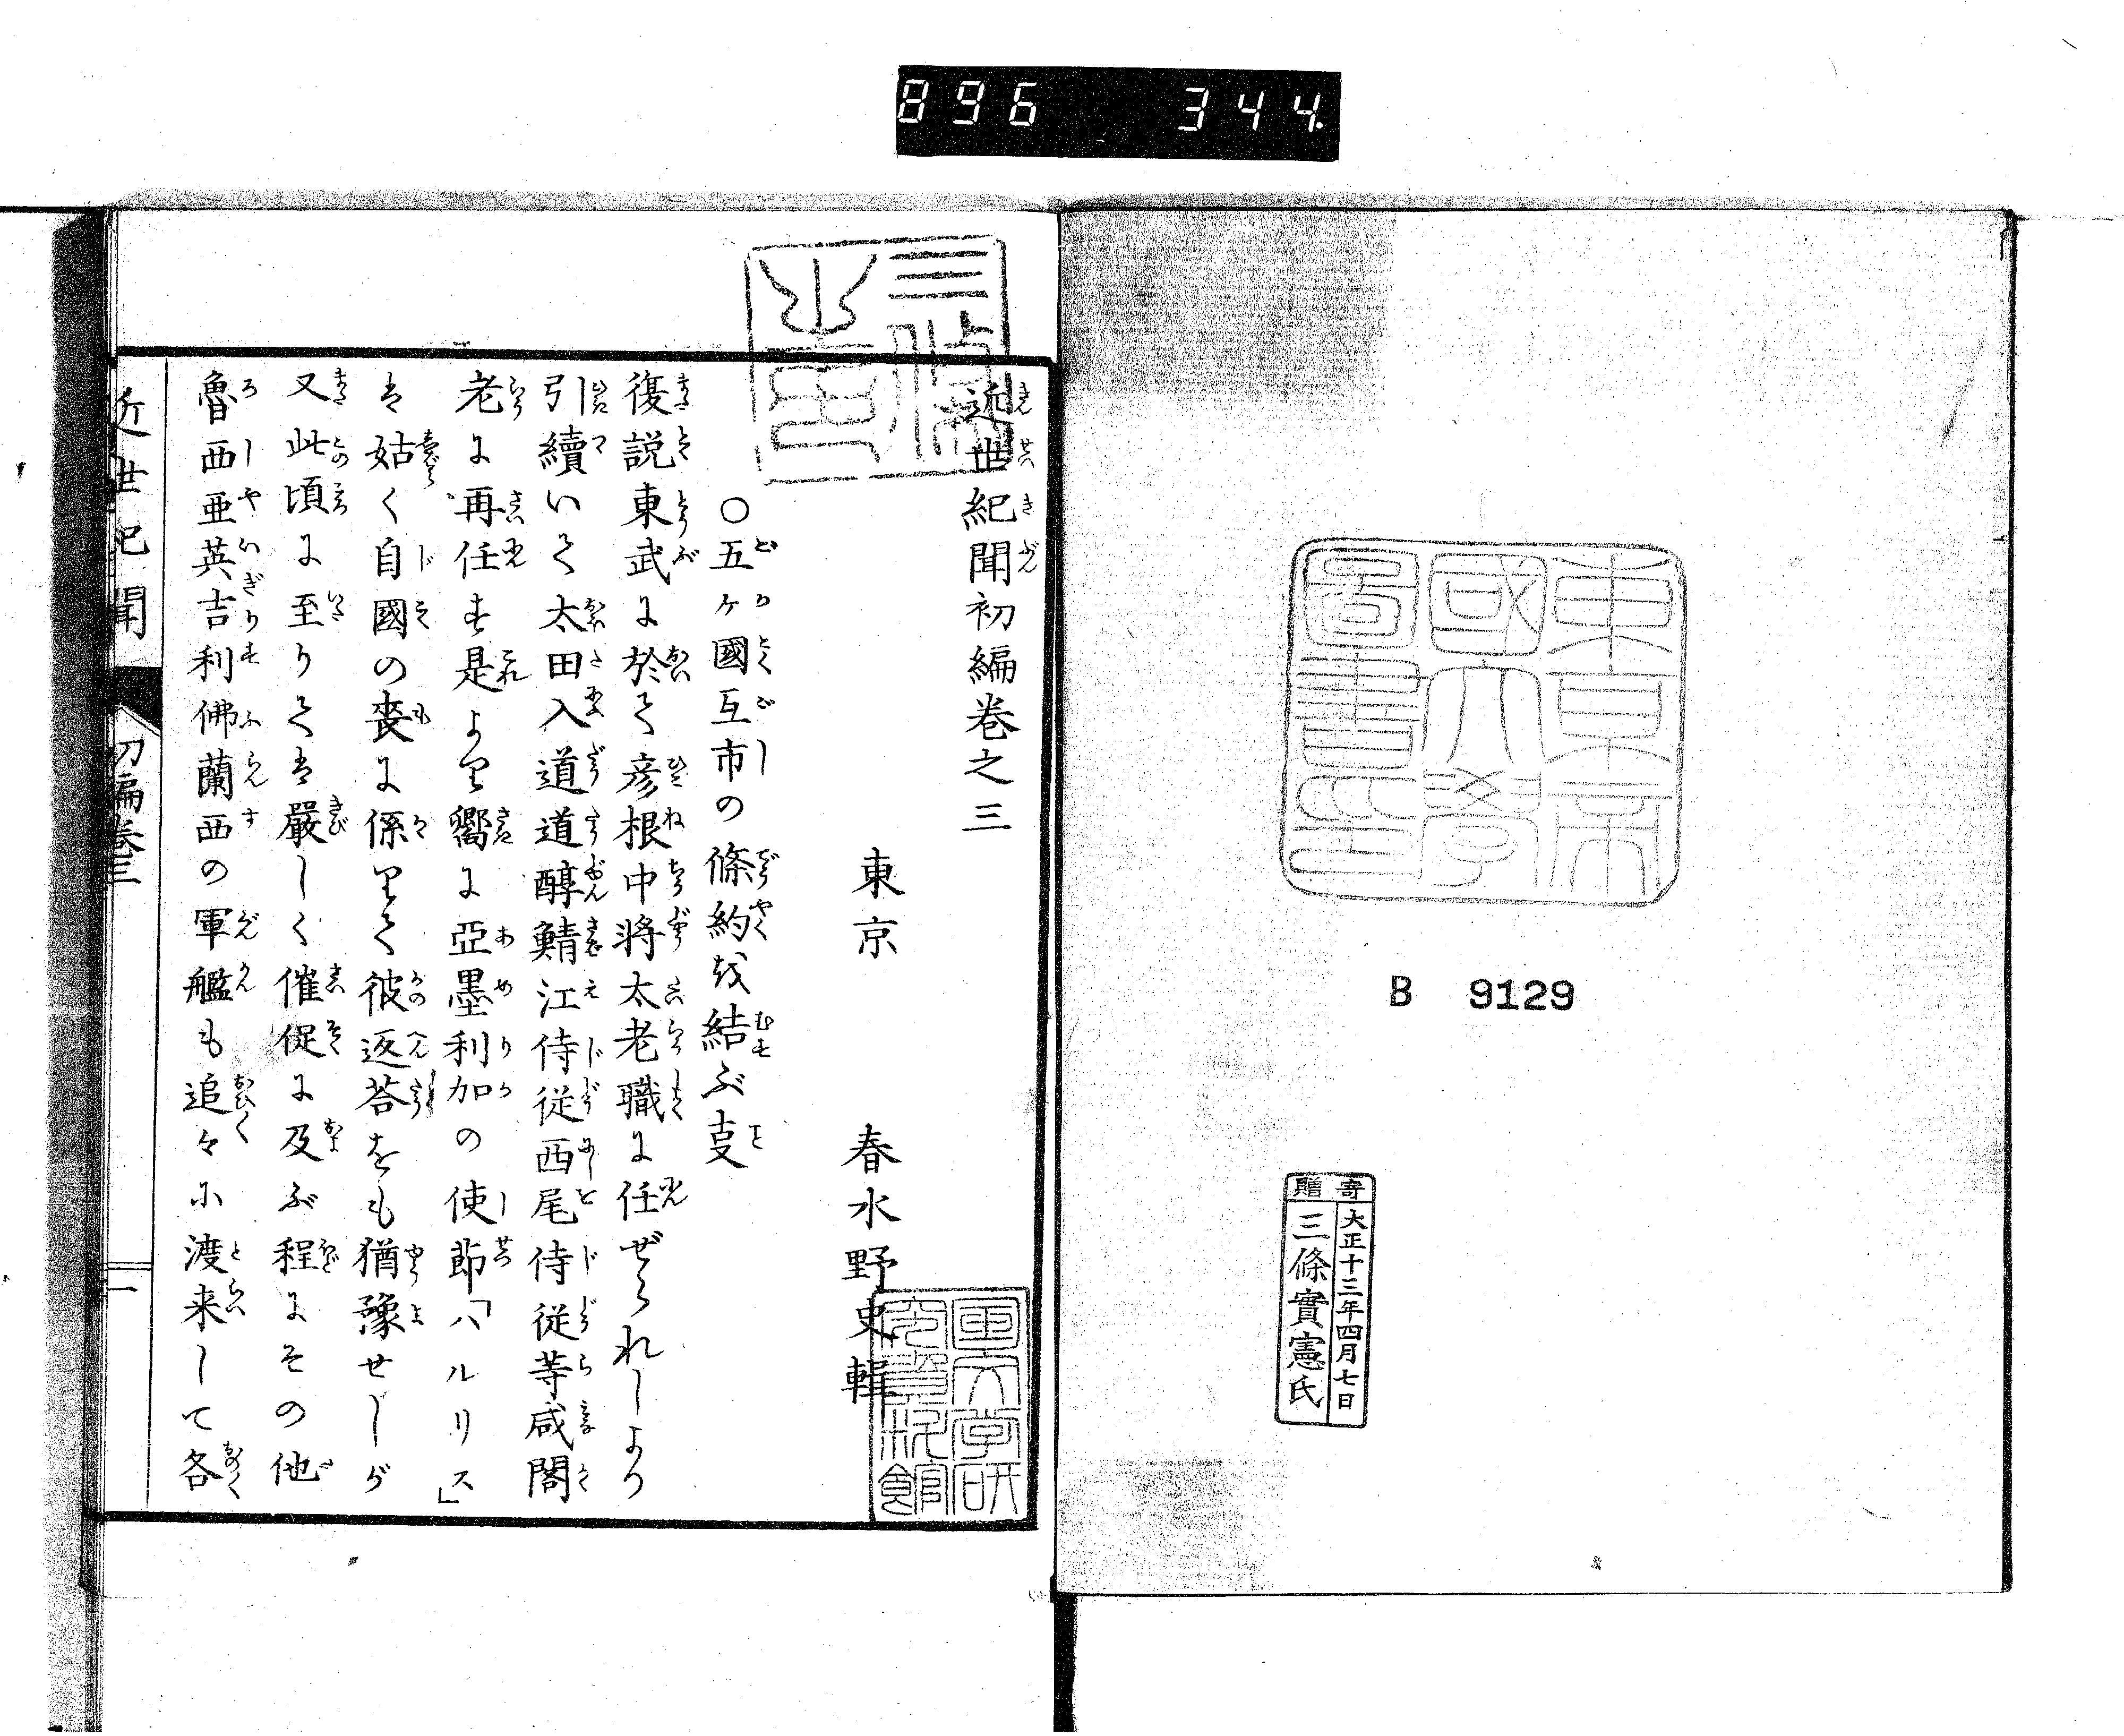 896 344
東京帝
國大學
圖書印
B 9129
寄贈
大正十三年四月七日
三條實憲氏
近世紀聞初編巻之三
東京 春水野史輯
○五ヶ國互市の條約を結ぶ事
復説東武に於て彦根中将太老職に任ぜられしより
引續いて太田入道道醇鯖江侍従西尾侍従等咸閣
老に再任す是より嚮に亞墨利加の使節「ハルリス」
は姑く自國の喪に係りて彼返荅をも猶豫せしが
又此頃に至りては嚴しく催促に及ぶ程にその他
魯西亜英吉利佛蘭西の軍艦も追々に渡来して各
近世紀聞 初編巻三 一